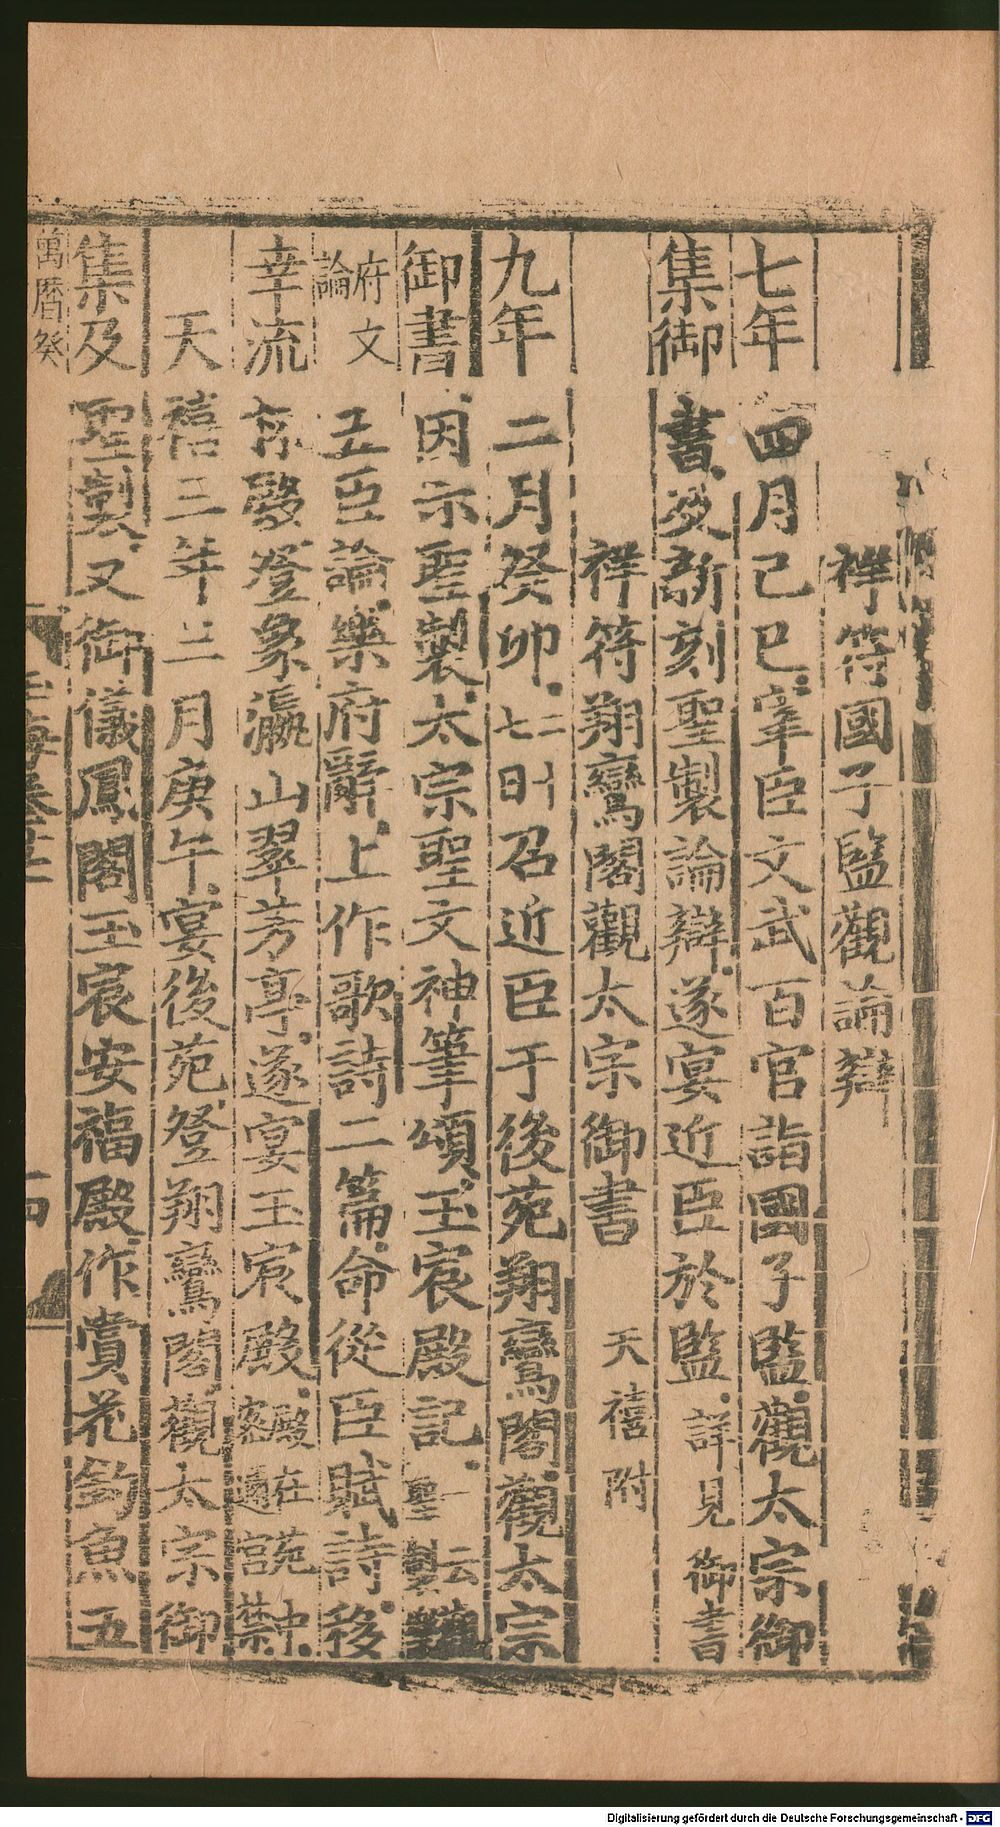 祥符國子監觀論辯
七年四月己巳宰臣文武百官詣國子監觀太宗御
集御書及新刻聖製論辯遂宴近臣於監詳見御書
祥符翔鸞閣觀太宗御書 天禧附
九年二月癸卯二十七日召近臣于後苑翔鸞閣觀太宗
御書因示聖製太宗聖文神筆頌玉宸殿記一云聖製
府文論五臣論樂府辭上作歌詩二篇命從臣賦詩移
幸流杯殿登象瀛山翠芳亭遂宴玉宸殿殿在苑中密邇宮禁
天禧三年三月庚午宴後苑登翔鸞閣觀太宗御
集及聖製又御儀鳳閣玉宸安福殿作賞花釣魚五
萬曆癸
玉海卷
Digitalisierung gefördert durch die Deutsche Forschungsgemeinschaft - DFG